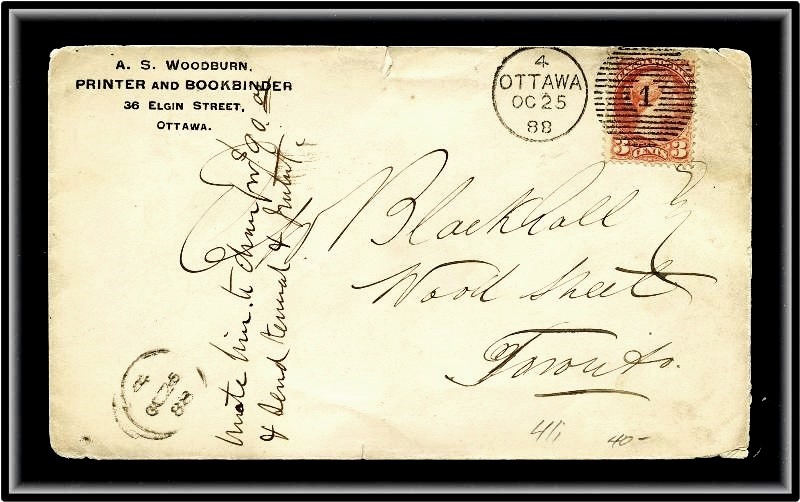 A. S. WOODBURN,
PRINTER AND BOOKBINDER
36 ELGIN STREET,
OTTAWA.
4
OTTAWA
OC 25
88
1
3 CENTS 3
Blackhall
Wood Street
Toronto.
wrote him to
& send
&
4
OC 26
88
411
40-